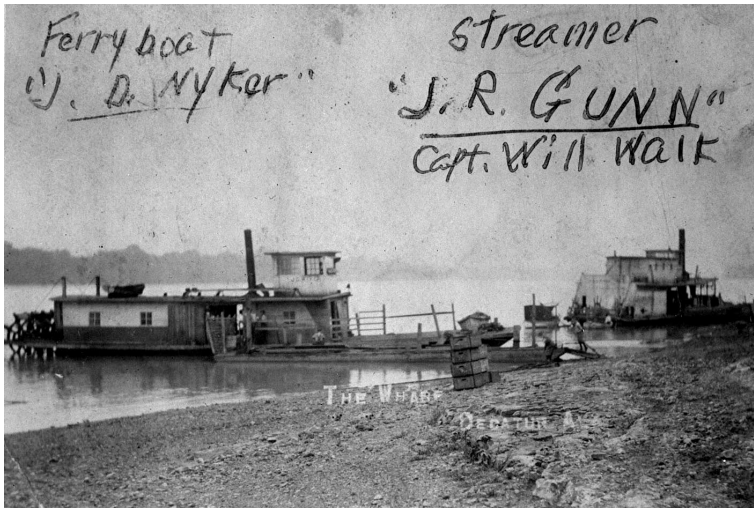 Ferryboat
"J. D. Nyker"
Streamer
"J. R. GUNN"
Capt. Will Walk
THE WHARF
DECATUR ALA